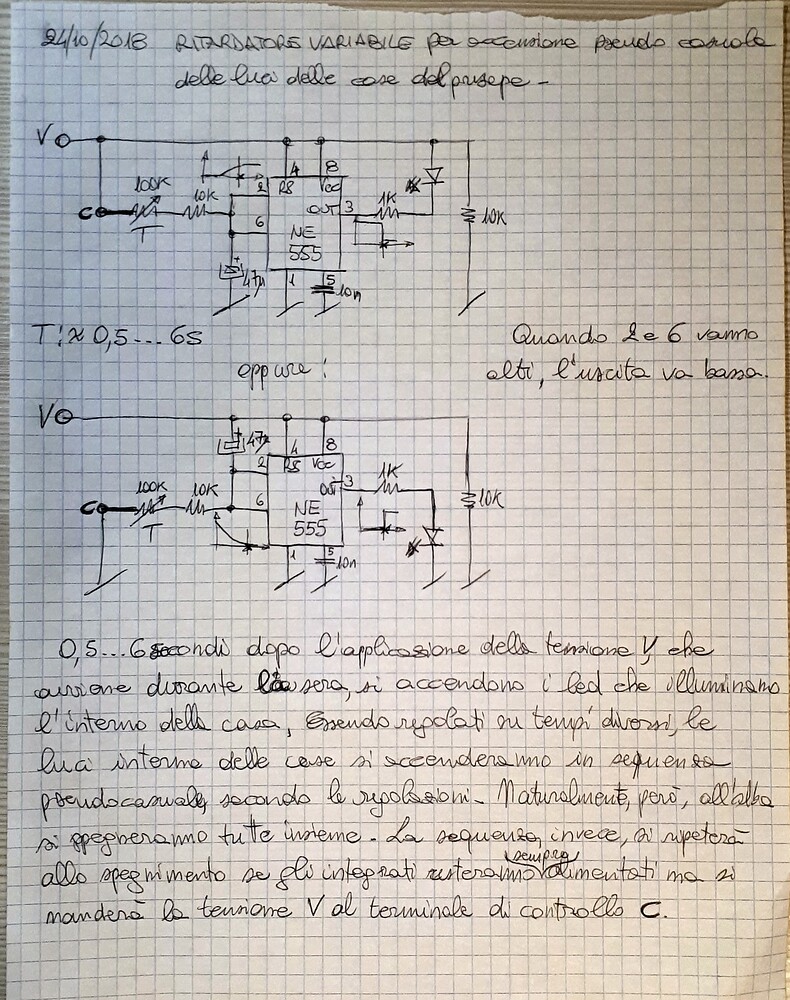 24/10/2018 RITARDATORE VARIABILE per accensione pseudo casuale
delle luci delle case del presepe -
V
4 8
100K 10K 2 RS Vcc
C OUT 3 1K
T 6 NE 10K
555
47µ 1 5 10n
T: ≈ 0,5 ... 6s
Quando 2 e 6 vanno
alti, l'uscita va bassa.
oppure:
V
47µ 4 8
2 RS Vcc
100K 10K OUT 3 1K
C 6 NE 10K
T 555
1 5 10n
0,5 ... 6 secondi dopo l'applicazione della tensione V, che
avviene durante la sera, si accendono i led che illuminano
l'interno della casa. Essendo regolati su tempi diversi, le
luci interne delle case si accenderanno in sequenza
pseudocasuale, secondo le regolazioni. Naturalmente, però, all'alba
si spegneranno tutte insieme. La sequenza, invece, si ripeterà
allo spegnimento se gli integrati resteranno sempre alimentati ma si
manderà la tensione V al terminale di controllo C.